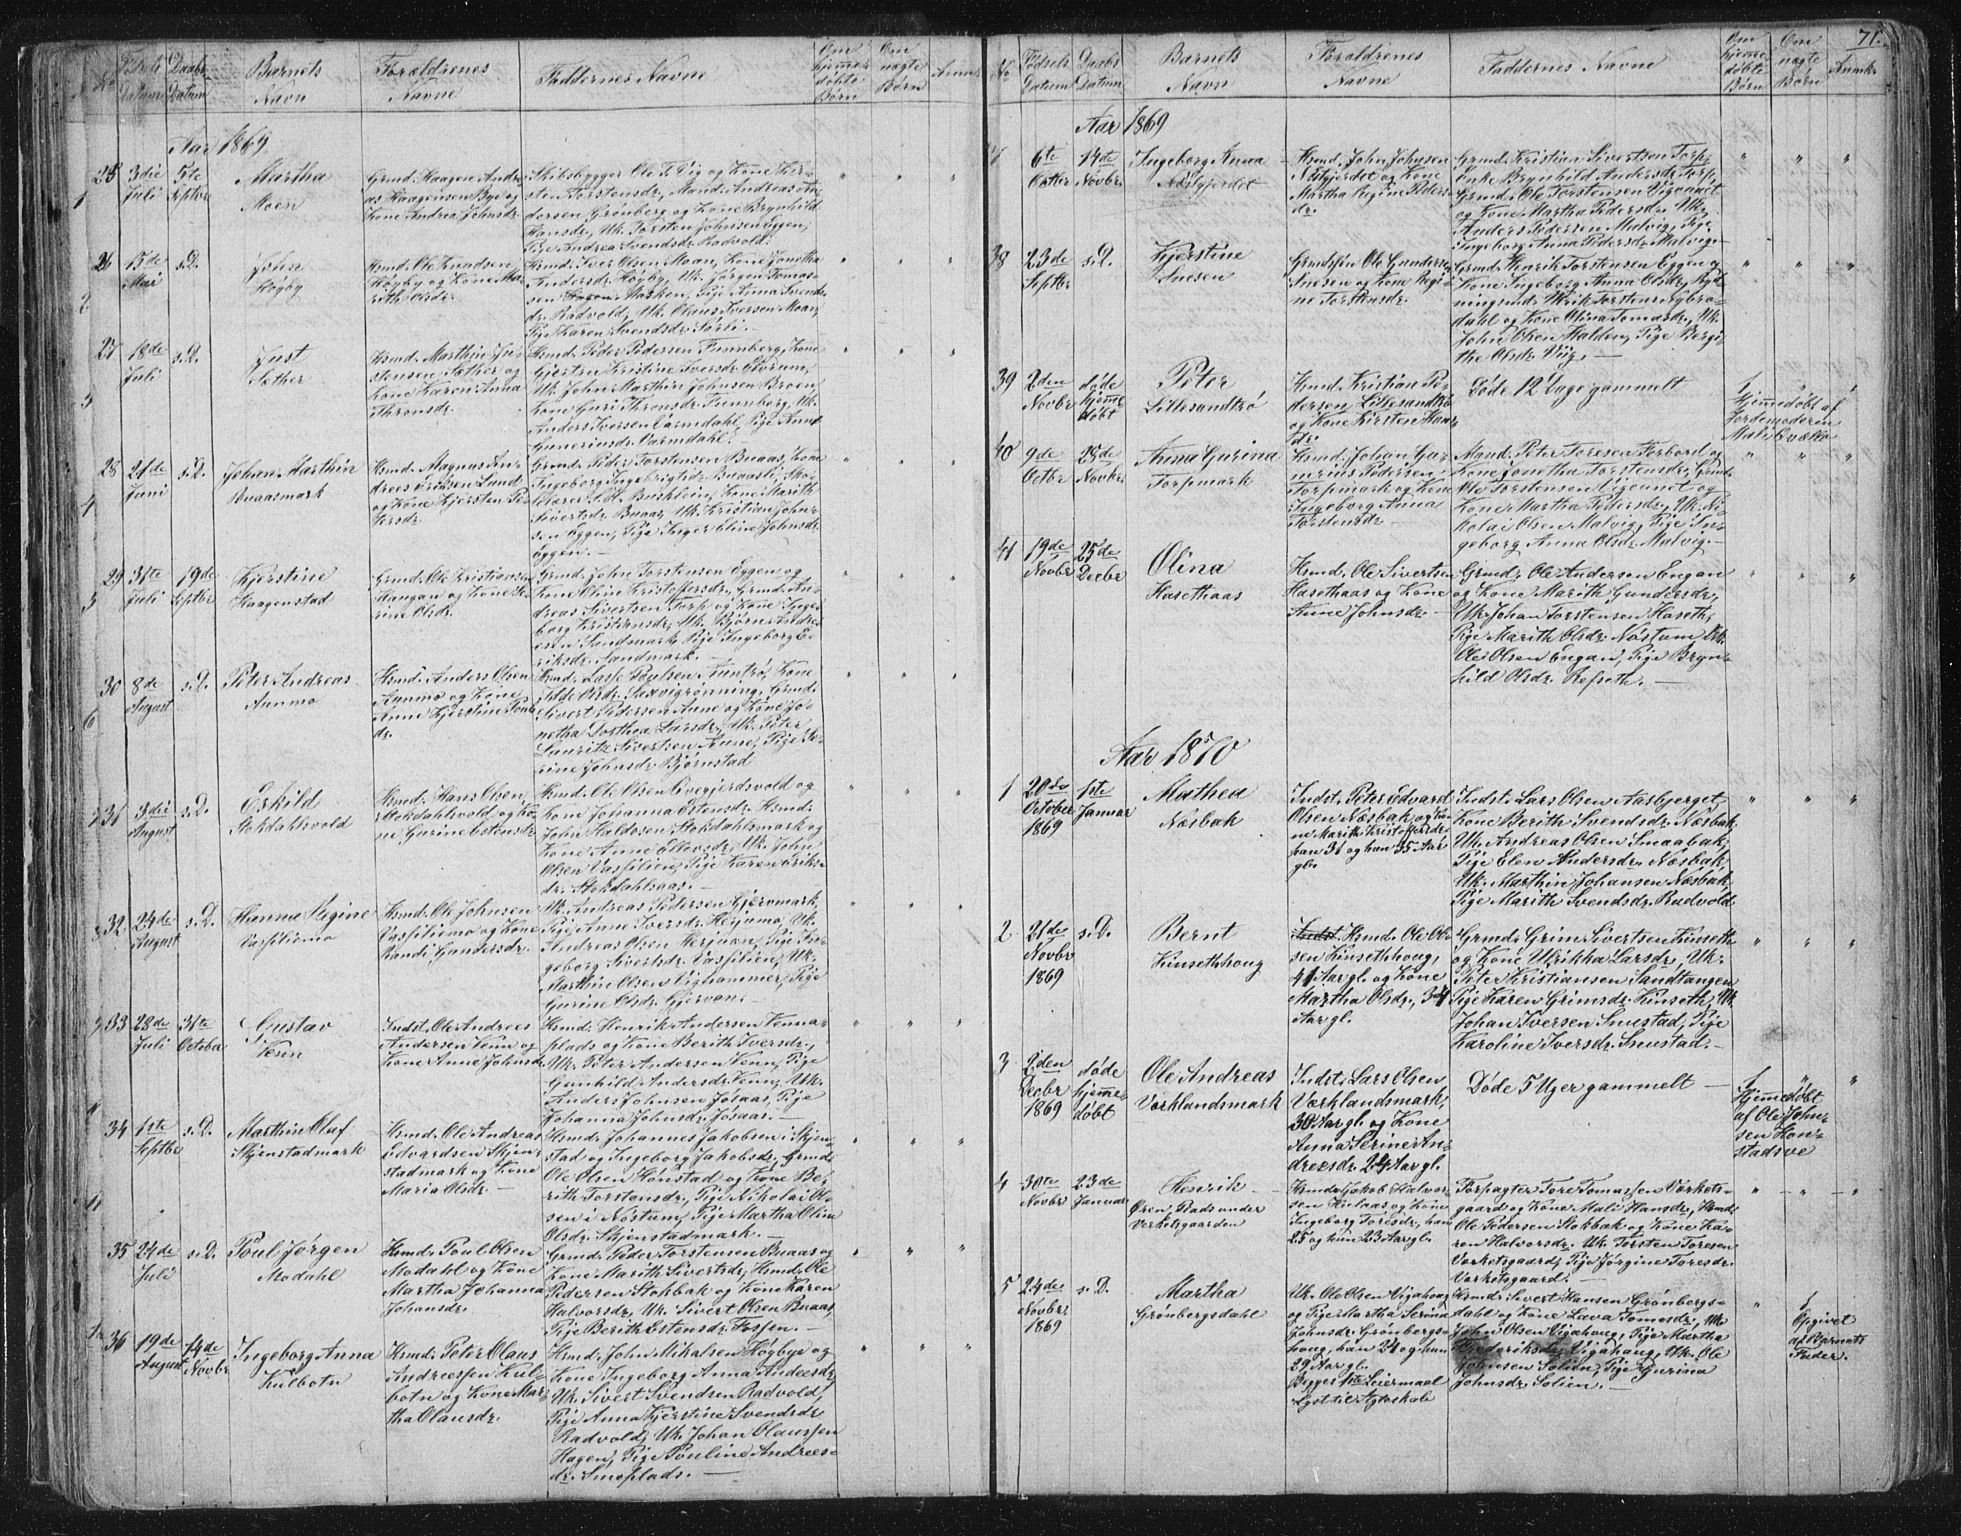 No
Fødsels Datum
Daabs Datum
Barnets Navn
Forældrenes Navne
Faddernes Navne
Om hjemmedøbte Børn
Om uægte Børn
Anmk.
Aar 1869
25
3die Juli
5te Septbr
Martha
Moen
Grmd. Haagen Andre-
as Haagensen Bye og
Kone Andrea Johnsdr.
Skibsbygger Ole T. Pig og Kone Kier-
sten Torstensdr, Mand. Andreas Th-
dorsen Grønberg og Kone Brynhild
Hansdr, Uk. Torsten Johnsen Eggen,
Pige Andrea Svendsdr. Radvold.
26
15de Mai
s.D.
John
Høgby
Hsmd. Ole Knudsen
Høgby og Kone Ma-
rith Olsdr.
Hsmd. Iver Olsen Moan, Kone Jonetha
Andersdr. Høgby, Uk. Jørgen Tomas-
sen Hasken, Pige Anna Svends-
dr. Radvold, Uk. Olaus Iversen Moan,
Pige Karen Svendsdr. Sørli. —
27
18de Juli
s.D.
Just
Sæther
Hsmd. Marthin Ju-
stensen Sæther og
Kone Karen Anna
Thronsdr.
Hsmd. Peder Pedersen Funnberg, Kone
Gjertru Kristine Iversdr. Storum,
Uk. John Marthin Johnsen Broen,
Kone Guri Thronsdr. Funnberg, Uk.
Anders Iversen Varmdahl, Pige Anne
Gunerinsdr. Varmdahl. —
28
24de Juni
s.D.
Johan Marthin
Buaasmark
Hsmd. Magnus An-
drees Eriksen Lund
og Kone Kjersten Pe-
tersdr.
Grmd. Peder Torstensen Buaas, Kone
Ingeborg Ingebrigtdr. Buaasli, Sko-
lelærer S. H. Bushlein, Kone Marith
Sivertsdr. Buaas, Uk. Kristian John-
sen Eggen, Pige Inger Eline Johnsdr.
Eggen. —
29
31te Juli
19de Septbr
Kjerstine
Haagenstad
Grmd. Ole Kristiansen
Haugan og Kone Se-
rine Olsdr.
Grmd. John Torstensen Eggen og
Kone Oline Kristoffersdr, Grmd. An-
dreas Sivertsen Torp og Kone Inge-
borg Kristensdr, Uk. Bjørn Andre-
esen Sandmark, Pige Ingeborg E-
riksdr. Sandmark. —
30
8de August
s.D.
Peter Andreas
Aunmo
Hsmd. Anders Olsen
Aunmo og Kone
Anne Kjerstine Pouls-
dr.
Hsmd. Lasse Poulsen Auntrø, Kone
Ilde Olsdr. Sakvigrønning, Grmd.
Sivert Pedersen Aune og Kone Jo-
netha Dorthea Larsdr., Uk. Peter
Lauritz Sivertsen Aune, Pige Se-
rine Johnsdr Bjørnstad
31
3die August
s.D.
Eskild
Stokdahlvold
Hsmd. Hans Olsen
Stokdahlvold og Ko-
ne Gurine Estensdr.
Hsmd. Ole Olsen Overgjerdsvold og
Kone Johanna Estensdr. Hsmd.
John Haldosen Stokdahlsmark og
Kone Anne Ellevsdr, Uk. John
Olsen Vasfilien, Pige Karen Eriks-
dr. Stokdahlsaas. —
32
24de August
s.D.
Hanna Regine
Vasfiliemo
Hsmd. Ole Johnsen
Vasfiliemo og Kone
Randi Gundersdr.
Uk. Andreas Pedersen Gjervmark,
Pige Anne Iversdr. Herjumo, Uk.
Andreas Olsen Herjuan, Pige In-
geborg Sivertsdr. Vasfilien, Uk.
Marthin Olsen Vighammer, Pige
Gurine Olsdr. Gjervan. —
33
28de Juli
31te October
Gustav
Venn
Indst. Ole Andreas
Andersen Venn og
Kone Anne Johnsdr.
Hsmd. Henrik Andersen Venna-
plads og Kone Berith Iversdr.,
Uk. Peter Andersen Venn, Pige
Gunhild Andersdr. Venn, Uk.
Anders Johnsen Jøsaas, Pige
Johanna Johnsdr. Jøsaas. —
34
1ste Septbr
s.D.
Marthin Oluf
Skjenstadmark
Hsmd. Ole Andreas
Edvardsen Skjen-
stadmark og Kone
Maria Olsdr. —
Hsmd. Johannes Jakobsen i Skjen-
stad og Ingeborg Jakobsdr, Grmd.
Ole Olsen Hønstad og Kone Be-
rith Torstensdr, Pige Nikolai Ol-
sen i Nøstum, Pige Martha Oline
Olsdr. Skjenstadmark. —
35
24de Juli
s.D.
Poul Jørgen
Modahl
Hsmd. Poul Olsen
Modahl og Kone
Martha Johanna
Johansdr.
Grmd. Peder Torstensen Buaas og
Kone Marith Sivertsdr, Hsmd. Ole
Pedersen Stokbak og Kone Karen
Halvorsdr, Uk. Sivert Olsen Buaas,
Pige Berith Estensdr. Fossen. —
36
19de August
14de Novbr
Ingeborg Anna
Kulbotn
Hsmd. Peter Olaus
Andreessen Kul-
botn og Kone Mar-
tha Olausdr.
Hsmd. John Mikalsen Høgbye og
Kone Ingeborg Anna Andersdr,
Uk. Sivert Svendsen Radvold,
Pige Anna Kjerstine Svendsdr
Radvold, Uk. Johan Olaussen
Hagen, Pige Pouline Andrees-
dr. Smoplads. —
71.
No
Fødsels Datum
Daabs Datum
Barnets Navn
Forældrenes Navne
Faddernes Navne
Om hjemmedøbte Børn
Om uægte Børn
Anmk.
Aar 1869
7
6te Octbr
14de Novbr.
Ingeborg Anna
Næstgjerdet
Hsmd. John Johnsen
Næstgjerdet og Kone
Martha Regine Peders-
dr.
Grmd. Kristian Sivertsen Torp,
Enke Brynhild Andersdr. Torp,
Grmd. Ole Torstensen Vigvannet
og Kone Martha Pedersdr., Uk.
Anders Pedersen Malvig, Pige
Ingeborg Anna Pedersdr. Malvig. —
38
23de Septbr
s.D.
Kjerstine
Snesen
Grmdsøn Ole Gundersen
Snesen og Kone Regi-
ne Torstensdr.
Grmd. Henrik Torstensen Eggen og
Kone Ingeborg Anna Olsdr, Ryd-
ningsmd. Ulrik Torstensen Nybro-
dahl og Kone Olina Tomasdr, Uk.
John Olsen Halden, Pige Bergi-
the Olsdr. Viig. —
39
2den Novbr
døde hjemmedøbt
Peter
Lillesandtrø
Hsmd. Kristian Pe-
dersen Lillesandtrø
og Kone Kirsten Haar-
dr.
Døde 12 Dage gammelt
Hjemmedøbt af
Jordemoderen
Mali Kvække
40
9de Octbr
28de Novbr
Anna Gurina
Torpmark
Hsmd. Johan Gu-
nerius Pedersen
Torpmark og Kone
Ingeborg Anna
Torstensdr. —
Mand. Peter Toresen Forbord og
Kone Jonetha Torstensdr, Grmd.
Ole Torstensen Vigvannet og
Kone Martha Pedersdr, Uk. Ni-
kolai Olsen Malvig, Pige In-
geborg Anna Olsdr. Malvig. —
41
19de Novbr
25de Decbr
Olina
Hasethaas
Hsmd. Ole Sivertsen
Hasethaas og Kone
Anne Johnsdr. —
Grmd. Ole Andersen Engan
og Kone Marith Gundersdr,
Uk. Johan Torstensen Haseth,
Pige Marith Olsdr. Nøstum, Uk.
Ole Olsen Engan, Pige Bryn-
hild Olsdr. Refseth. —
Aar 1870
1
20de October 1869
1ste Januar
Mathea
Næsbak
Indst. Peter Edvard
Olsen Næsbak og Ko-
ne Marith Kristoffersdr.
han 31 og hun 35 Aar
gl.
Indst. Lars Olsen Aasbjerget,
Kone Berith Svendsdr. Næsbak,
Uk. Andreas Olsen Smaabak,
Pige Elen Andersdr. Næsbak,
Uk. Marthin Johansen Næsbak,
Pige Marith Svendsdr. Radvold.
2
21de Novbr 1869
s.D.
Bernt
Kinsethhoug
Indst. Hsmd. Ole Ol-
sen Kinsethhoug,
41 Aar gl. og Kone
Martha Olsdr., 34
Aar gl.
Grmd. Grim Sivertsen Kinseth
og Kone Ulrikha Larsdr., Uk.
Peter Kristiansen Sandtangen
Pige Karen Grimsdr. Kinseth, Uk
Johan Iversen Snustad, Pige
Karoline Iversdr. Snustad. —
3
2den Decbr 1869
døde hjemmedøbt
Ole Andreas
Værklandsmark
Indst. Lars Olsen
Værklandsmark,
30 Aar gl. og Kone
Anna Serine An-
dreesdr. 24 Aar gl.
Døde 5 Uger gammelt —
Hjemmedøbt
af Ole John-
sen Hon-
stadsve
4
30te Novbr
23de Januar
Henrik
Øren, Plads under
Verketsgaarden
Hsmd. Jakob Halvor-
sen Hulaas og Kone
Ingeborg Toresdr., han
25 og hun 23 Aar gl.
Forpagter Tore Tomassen Værkets-
gaard og Kone Mali Hansdr, Hsmd.
Ole Pedersen Stokbak og Kone Ka-
ren Halvorsdr. Uk. Torsten Toresen
Værketsgaard, Pige Jørgine Toresdr.
Værketsgaard. —
5
24de Novbr. 1869
s.D.
Martha
Grønbergsdahl
Uk. Ole Olsen Vigahoug
og Pige Martha Serine
Johnsdr. Grønbergs-
houg, han 24 og hun
29 Aar gl.
Begges 1ste Leiermaal
Lyst til Ægteskab
Hsmd. Sivert Hansen Grønbergs-
dahl og Kone Lava Tomasdr, Uk.
John Olsen Vigahoug, Pige Martha
Frederiksdr. Vigahoug, Uk. Ole
Johnsen Solien, Pige Gjurina
Johnsdr. Solien. —
1
Opgivet
af Barnets
Fader.